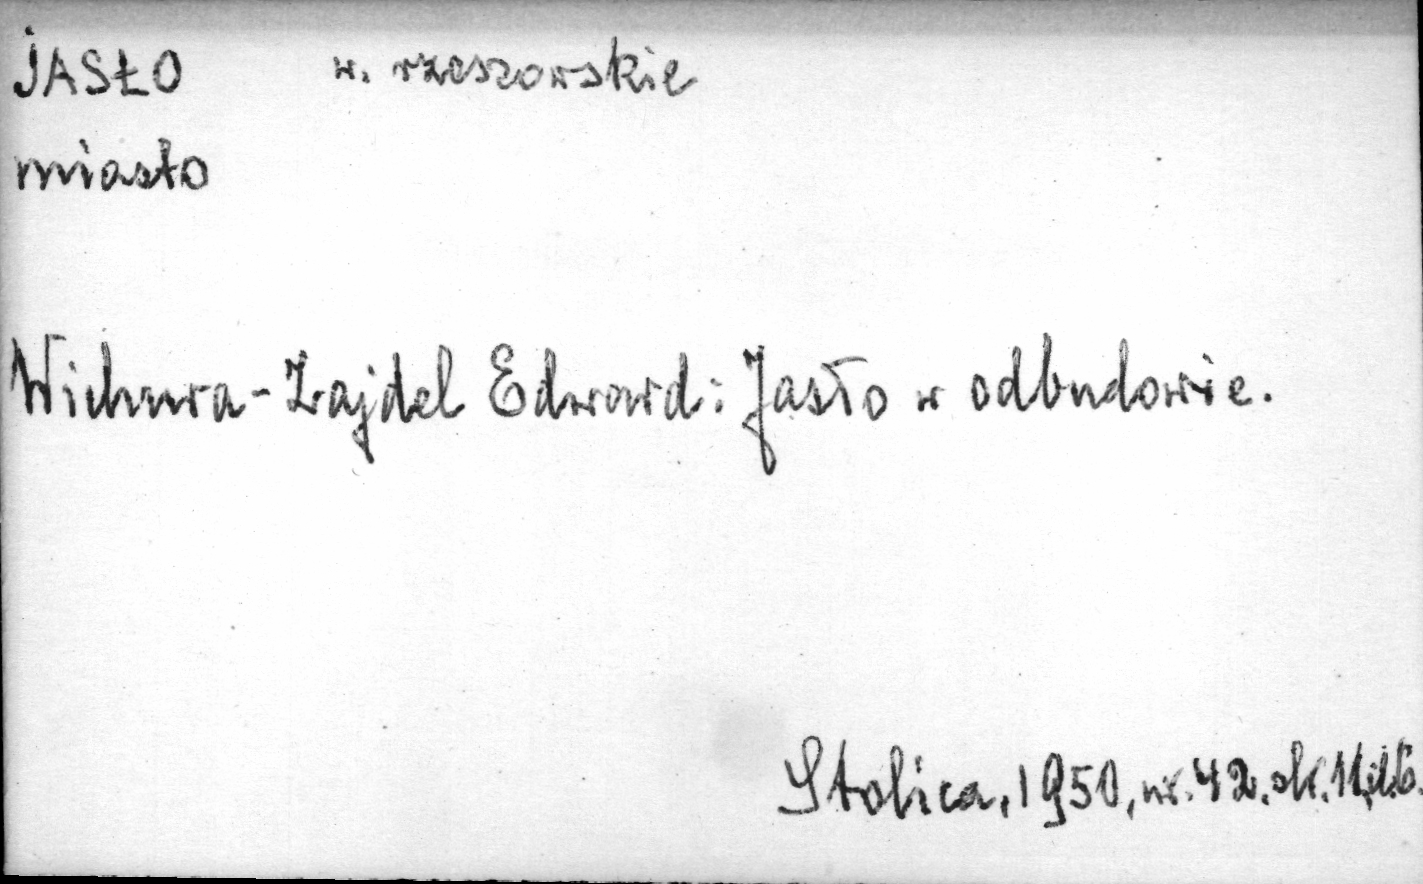 JASŁO w. rzeszowskie
miasto
Wichura-Zajdel Edward: Jasło w odbudowie.
Stolica, 1950, nr. 42. str. 11,